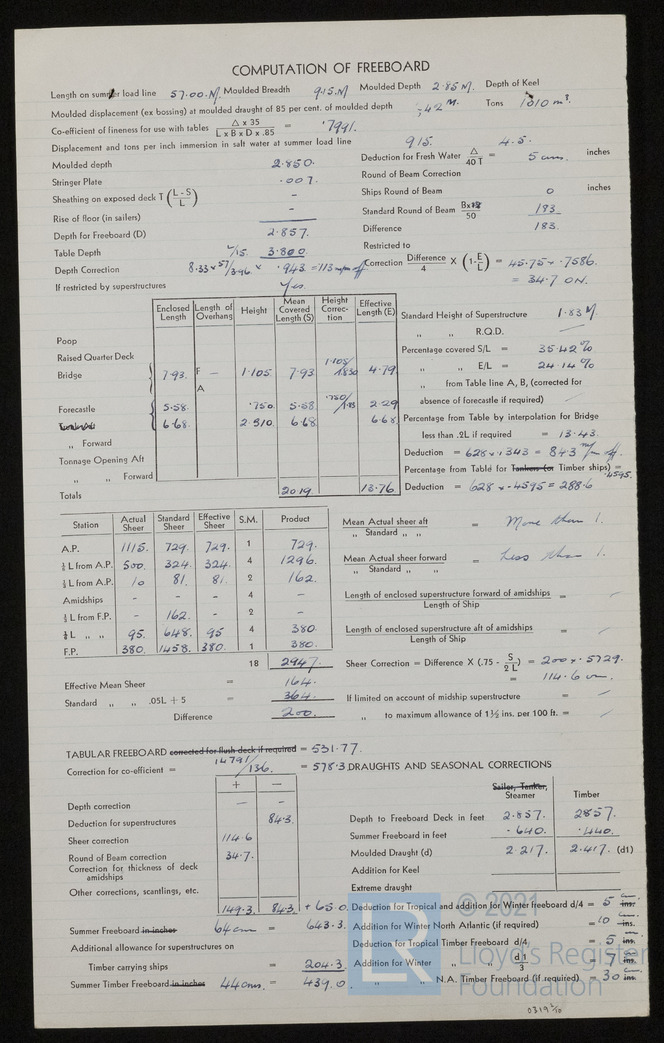 COMPUTATION OF FREEBOARD
Length on summer load line 57.00.M. Moulded Breadth 9.15.M Moulded Depth 2.85 M. Depth of Keel
Moulded displacement (ex bossing) at moulded draught of 85 per cent. of moulded depth 2.42 M. Tons 1010 m³.
Co-efficient of fineness for use with tables Δ x 35 / L x B x D x .85 = .7991.
Displacement and tons per inch immersion in salt water at summer load line 915. 4.5.
Moulded depth 2.850.
Stringer Plate .007.
Sheathing on exposed deck T (L - S / L) -
Rise of floor (in sailers) -
Depth for Freeboard (D) 2.857.
Table Depth L/15. 3.800
Depth Correction 8.33 x 57/3.96 x .943 = 113 m/m off
If restricted by superstructures Yes.
Deduction for Fresh Water Δ / 40T = 5 cms. inches
Round of Beam Correction
Ships Round of Beam 0 inches
Standard Round of Beam Bx12 / 50 183
Difference 183.
Restricted to
Correction Difference / 4 X (1-E/L) = 45.75 x .7586.
= 34.7 ON.
Enclosed Length Length of Overhang Height Mean Covered Length (S) Height Correction Effective Length (E)
Poop
Raised Quarter Deck
Bridge 7.93. F — 1.105 7.93 1.105/1.830 4.79.
A
Forecastle 5.58. .750. 5.58 .750/1.83 2.29
6.68. 2.510. 6.68 6.68
,, Forward
Tonnage Opening Aft
,, ,, Forward
Totals 20.19. 13.76
Standard Height of Superstructure 1.83 M.
,, ,, R.Q.D. —
Percentage covered S/L = 35.42 %
,, ,, E/L = 24.14 %
,, from Table line A, B, (corrected for
absence of forecastle if required)
Percentage from Table by interpolation for Bridge
less than .2L if required = 13.43.
Deduction = 628 x .1343 = 84.3 m/m off.
Percentage from Table for Tankers (or Timber ships) = .4595.
Deduction = 628 x .4595 = 288.6
Station Actual Sheer Standard Sheer Effective Sheer S.M. Product
A.P. 1115. 729. 729. 1 729.
⅙ L from A.P. 500. 324. 324. 4 1296.
⅓ L from A.P. 10 81. 81. 2 162.
Amidships - - - 4 -
⅓ L from F.P. - 162. - 2 -
⅙ L ,, ,, 95. 648. 95 4 380.
F.P. 380. 1458. 380. 1 380.
18 2947.
Effective Mean Sheer = 164.
Standard ,, ,, .05L + 5 = 364.
Difference 200.
Mean Actual sheer aft / ,, Standard ,, ,, = More than 1.
Mean Actual sheer forward / ,, Standard ,, ,, = Less than 1.
Length of enclosed superstructure forward of amidships / Length of Ship =
Length of enclosed superstructure aft of amidships / Length of Ship =
Sheer Correction = Difference X (.75 - S / 2L) = 200 x .5729.
= 114.6 on.
If limited on account of midship superstructure =
,, to maximum allowance of 1½ ins. per 100 ft. =
TABULAR FREEBOARD corrected for flush deck if required = 531.77.
Correction for co-efficient = 1.4791/1.36. = 578.3
+ -
Depth correction — -
Deduction for superstructures 84.3.
Sheer correction 114.6
Round of Beam correction 34.7.
Correction for thickness of deck amidships
Other corrections, scantlings, etc.
149.3. 84.3. + 65.0.
Summer Freeboard in inches 64 cm = 643.3.
Additional allowance for superstructures on
Timber carrying ships = 204.3
Summer Timber Freeboard in inches 44 cms. = 439.0
DRAUGHTS AND SEASONAL CORRECTIONS
Sailer, Tanker, Steamer Timber
Depth to Freeboard Deck in feet 2.857. 2857.
Summer Freeboard in feet .640. .440.
Moulded Draught (d) 2.217. 2.417. (d1)
Addition for Keel
Extreme draught
Deduction for Tropical and addition for Winter freeboard d/4 = 5 cm ins.
Addition for Winter North Atlantic (if required) = 10 ins.
Deduction for Tropical Timber Freeboard d/4 = 5 ins.
Addition for Winter ,, ,, d1/3 = 7 ins.
,, ,, N.A. Timber Freeboard (if required) = 30 ins.
© 2021
LR
Lloyd's Register
Foundation